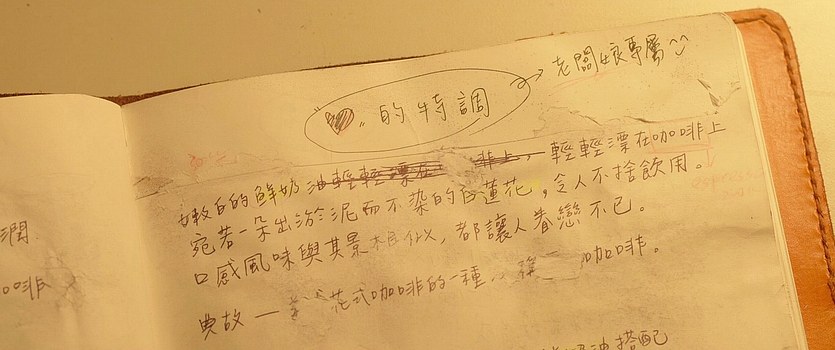 老闆娘專屬^^
"♥"的特調
嫩白的鮮奶油輕輕漂在咖啡上,
宛若一朵出淤泥而不染的白蓮花,令人不捨飲用。
口感風味與其景相似,都讓人眷戀不已。
典故一 花式咖啡的一種 咖啡。
潤
咖啡
油搭配